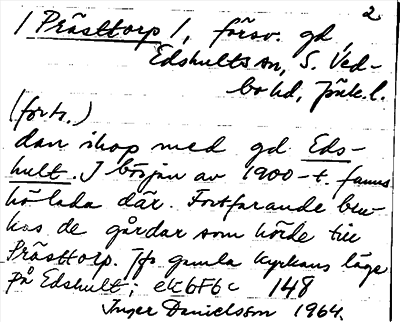 2
/ Prästtorp /, försv. gd,
Edshults sn, S. Ved-
bo hd, Jönk. l.
(forts.)
dan ihop med gd Eds-
hult. I början av 1900-t. fanns
hölada där. Fortfarande bru-
kas de gårdar som hörde till
Prästtorp. Jfr gamla kyrkans läge
på Edshult; ek 6F6c 148
Inger Danielsson 1964.